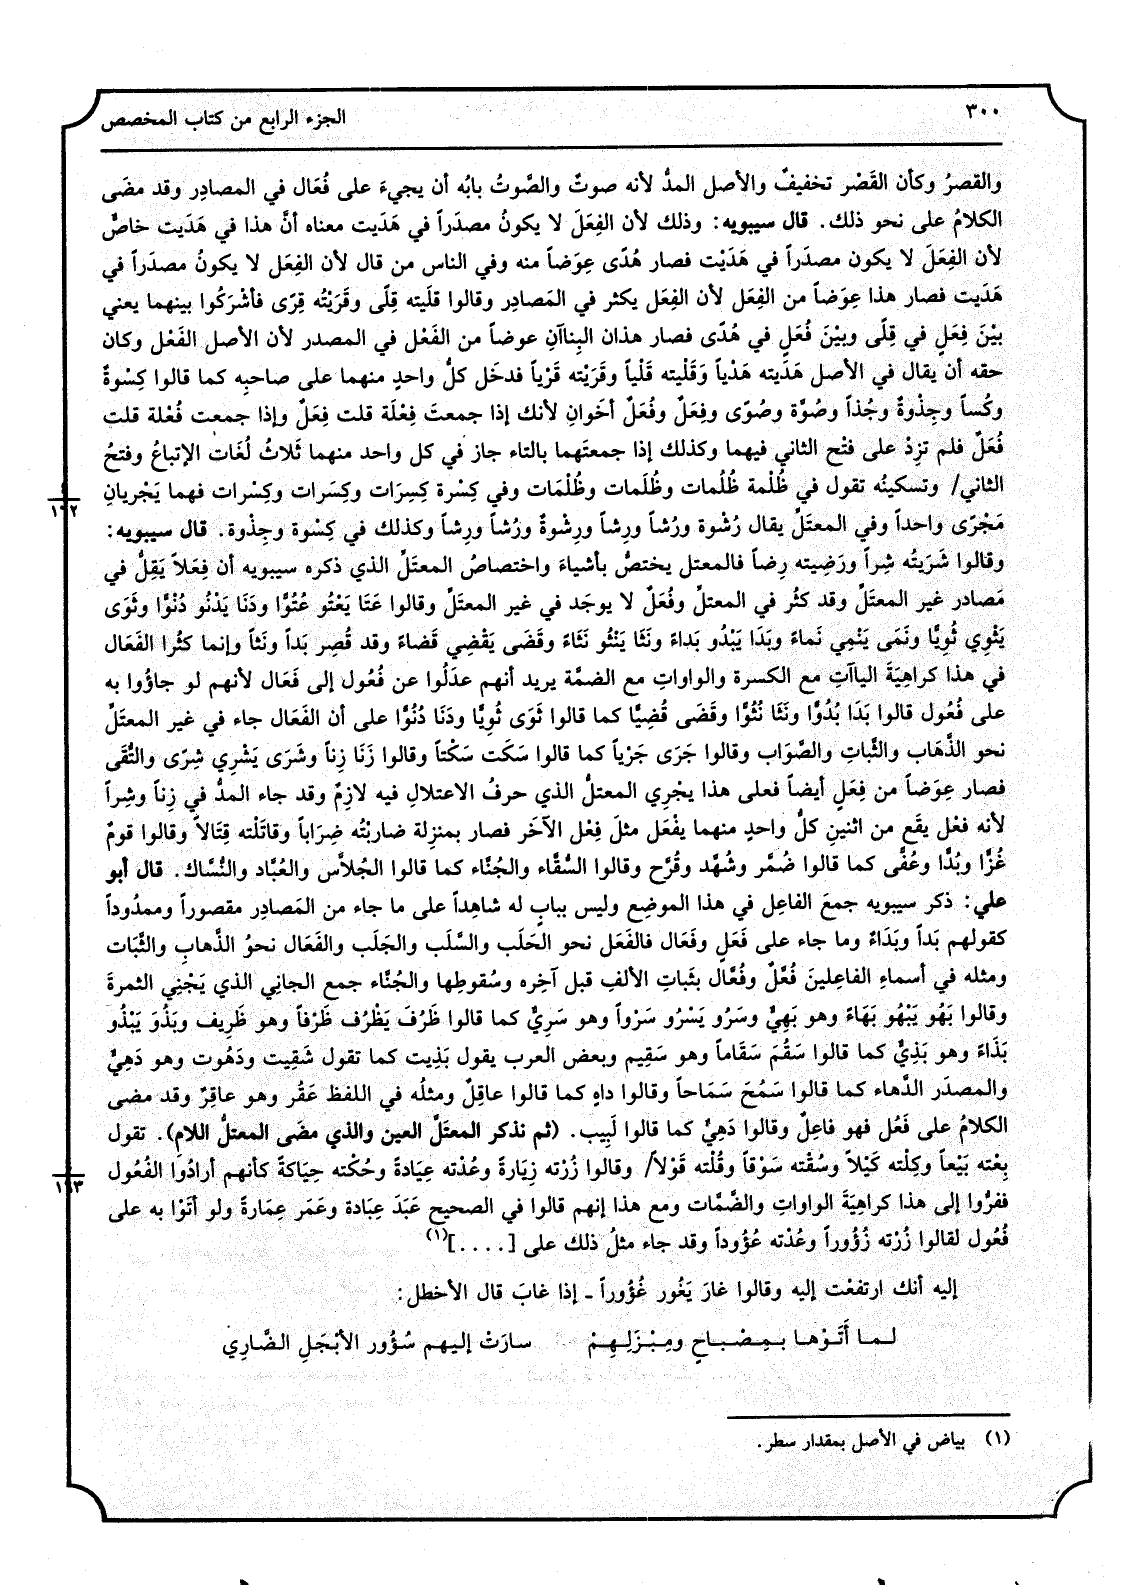 ٣٠٠
الجزء الرابع من كتاب المخصص
والقصرُ وكأن القَصْر تخفيفٌ والأصل المدُّ لأنه صوتٌ والصَّوتُ بابُه أن يجيءَ على فُعَال في المصادِر وقد مضَى
الكلامُ على نحو ذلك. قال سيبويه: وذلك لأن الفِعَلَ لا يكونُ مصدَراً في هَدَيت معناه أنَّ هذا في هَدَيت خاصٌّ
لأن الفِعَلَ لا يكون مصدَراً في هَدَيْت فصار هُدًى عِوَضاً منه وفي الناس من قال لأن الفِعَل لا يكونُ مصدَراً في
هَدَيت فصار هذا عِوَضاً من الفِعَل لأن الفِعَل يكثر في المَصادِر وقالوا قلَيته قِلًى وقَرَيْتُه قِرًى فأشْرَكُوا بينهما يعني
بيْنَ فِعَلٍ في قِلًى وبيْنَ فُعَلٍ في هُدًى فصار هذان البِناآنِ عوضاً من الفَعْل في المصدر لأن الأصل الفَعْل وكان
حقه أن يقال في الأصل هَدَيته هَدْياً وَقَلْيته قَلْياً وقَرَيْته قَرْياً فدخَل كلُّ واحدٍ منهما على صاحبِه كما قالوا كِسْوةٌ
وكُساً وجِذْوةٌ وجُذاً وصُوَّة وصُوًى وفِعَلٌ وفُعَلٌ أخَوانِ لأنك إذا جمعتَ فِعْلَة قلت فِعَلٌ وإذا جمعت فُعْلة قلت
فُعَلٌ فلم تزِدْ على فتْح الثاني فيهما وكذلك إذا جمعتَهما بالتاء جاز في كل واحد منهما ثَلاثُ لُغَات الإتباعُ وفتحُ
الثاني/ وتسكينُه تقول في ظُلْمة ظُلُمات وظُلَمات وظُلْمَات وفي كِسْرة كِسِرَات وكِسَرات وكِسْرات فهما يَجْريانِ
١٦٢
مَجْرًى واحداً وفي المعتَلِّ يقال رُشْوة ورُشاً ورِشاً ورِشْوةٌ ورُشاً ورِشاً وكذلك في كِسْوة وجِذْوة. قال سيبويه:
وقالوا شَرَيتُه شِراً ورَضِيته رِضاً فالمعتل يختصُّ بأشياءَ واختصاصُ المعتَلِّ الذي ذكره سيبويه أن فِعَلاً يَقِلُّ في
مَصادر غير المعتَلِّ وقد كثُر في المعتلِّ وفُعَلٌ لا يوجَد في غير المعتَلِّ وقالوا عَتَا يَعْتُو عُتُوًّا ودَنَا يَدْنُو دُنُوًّا وثَوَى
يَثْوِي ثُويًّا ونَمَى يَنْمِي نَماءً وبَدَا يَبْدُو بَداءً ونَثَا يَنْثُو نَثَاءً وقَضَى يَقْضِي قَضاءً وقد قُصِر بَداً ونَثاً وإنما كثُرا الفَعَال
في هذا كراهِيَةَ الياآتِ مع الكسرة والواواتِ مع الضمَّة يريد أنهم عدَلُوا عن فُعُول إلى فَعَال لأنهم لو جاؤُوا به
على فُعُول قالوا بَدَا بُدُوًّا ونَثَا نُثُوًّا وقَضَى قُضِيًّا كما قالوا ثَوَى ثُويًّا ودَنَا دُنُوًّا على أن الفَعَال جاء في غير المعتَلِّ
نحو الذَّهَاب والثَّباتِ والصَّوَاب وقالوا جَرَى جَرْياً كما قالوا سَكَت سَكْتاً وقالوا زَنَا زِناً وشَرَى يَشْرِي شِرًى والتُّقَى
فصار عِوَضاً من فِعَلٍ أيضاً فعلى هذا يجْرِي المعتلُّ الذي حرفُ الاعتلالِ فيه لازِمٌ وقد جاء المدُّ في زِناً وشِراً
لأنه فعْل يقَع من اثنينِ كلُّ واحدٍ منهما يفْعَل مثلَ فِعْل الآخَر فصار بمنزِلة ضاربْتُه ضِرَاباً وقاتَلْته قِتَالاً وقالوا قومٌ
غُزًّا وبُدًّا وعُفًّى كما قالوا ضُمَّر وشُهَّد وقُرَّح وقالوا السُّقَّاء والجُنَّاء كما قالوا الجُلاَّس والعُبَّاد والنُّسَّاك. قال أبو
علي: ذكر سيبويه جمعَ الفاعِل في هذا الموضِع وليس ببابٍ له شاهِداً على ما جاء من المَصادِر مقصوراً وممدُوداً
كقولهم بَداً وبَدَاءً وما جاء على فَعَلٍ وفَعَال فالفَعَل نحو الحَلَب والسَّلَب والجَلَب والفَعَال نحوُ الذَّهابِ والثَّبَات
ومثله في أسماءِ الفاعِلينَ فُعَّلٌ وفُعَّال بثَباتِ الألفِ قبل آخِره وسُقوطِها والجُنَّاء جمع الجانِي الذي يَجْنِي الثمرةَ
وقالوا بَهُو يَبْهُو بَهَاءً وهو بَهِيٌّ وسَرُو يَسْرُو سَرْواً وهو سَرِيٌّ كما قالوا ظَرُفَ يَظْرُف ظَرْفاً وهو ظَرِيف وبَذُوَ يَبْذُو
بَذَاءً وهو بَذِيٌّ كما قالوا سَقُمَ سَقَاماً وهو سَقِيم وبعض العرب يقول بَذِيت كما تقول شَقِيت ودَهُوت وهو دَهِيٌّ
والمصدَر الدَّهاء كما قالوا سَمُحَ سَمَاحاً وقالوا داهٍ كما قالوا عاقِلٌ ومثلُه في اللفظ عَقُر وهو عاقِرٌ وقد مضى
الكلامُ على فَعُل فهو فاعِلٌ وقالوا دَهِيٌّ كما قالوا لَبِيب. (ثم نذكر المعتَلَّ العين والذي مضَى المعتلُّ اللامِ). تقول
بِعْته بَيْعاً وكِلْته كَيْلاً وسُقْته سَوْقاً وقُلْته قَوْلاً/ وقالوا زُرْته زِيَارةً وعُدْته عِيَادةً وحُكْته حِيَاكةً كأنهم أرادُوا الفُعُول
١٦٣
ففرُّوا إلى هذا كراهِيَةَ الواواتِ والضَّمَّات ومع هذا إنهم قالوا في الصحيح عَبَدَ عِبَادة وعَمَر عِمَارةً ولو أتَوْا به على
فُعُول لقالوا زُرْته زُؤُوراً وعُدْته عُؤُوداً وقد جاء مثلُ ذلك على [....](١)
إليه أنك ارتفعْت إليه وقالوا غارَ يَغُور غُؤُوراً - إذا غابَ قال الأخطل:
لـمـا أَتَـوْهـا بـمِـصْـبـاحٍ ومِـبْـزَلِـهِـمْ    سارَتْ إليهم سُؤُور الأبْجَلِ الضَّارِي
(١) بياض في الأصل بمقدار سطر.